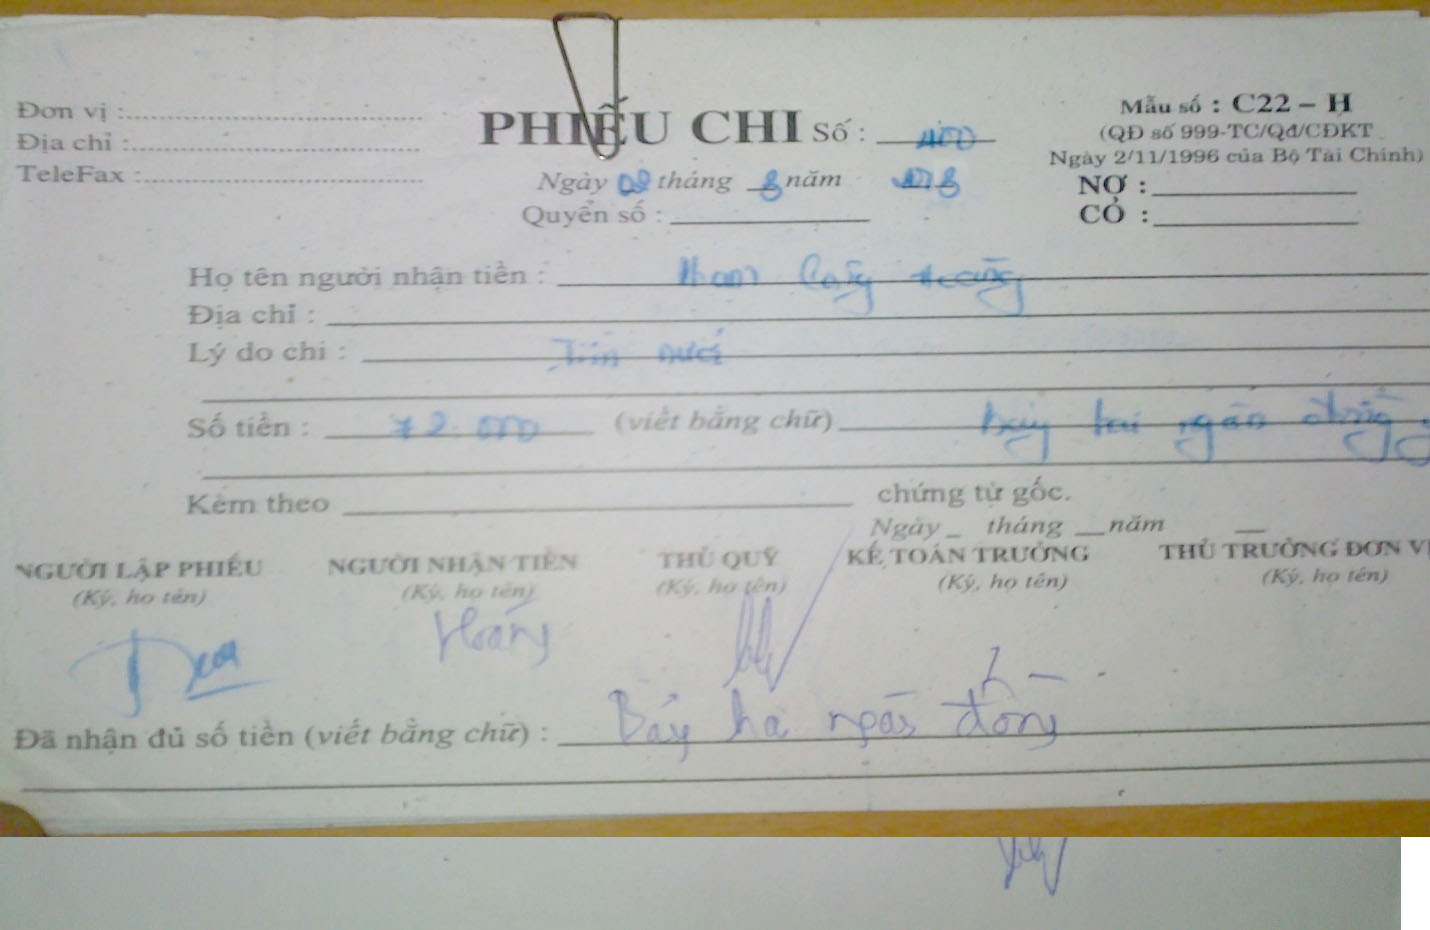 Đơn vị :
Địa chỉ :
TeleFax :
PHIẾU CHI Số : 400
Ngày 08 tháng 8 năm
Quyển số :
Mẫu số : C22 – H
(QĐ số 999-TC/Qđ/CĐKT
Ngày 2/11/1996 của Bộ Tài Chính)
NỢ :
CÓ :
Họ tên người nhận tiền :
Địa chỉ :
Lý do chi : Tiền nước
Số tiền : 72.000 (viết bằng chữ) bảy hai ngàn đồng
Kèm theo chứng từ gốc.
Ngày tháng năm
NGƯỜI LẬP PHIẾU NGƯỜI NHẬN TIỀN THỦ QUỸ KẾ TOÁN TRƯỞNG THỦ TRƯỞNG ĐƠN VỊ
(Ký, họ tên) (Ký, họ tên) (Ký, họ tên) (Ký, họ tên) (Ký, họ tên)
Đã nhận đủ số tiền (viết bằng chữ) : Bảy hai ngàn đồng